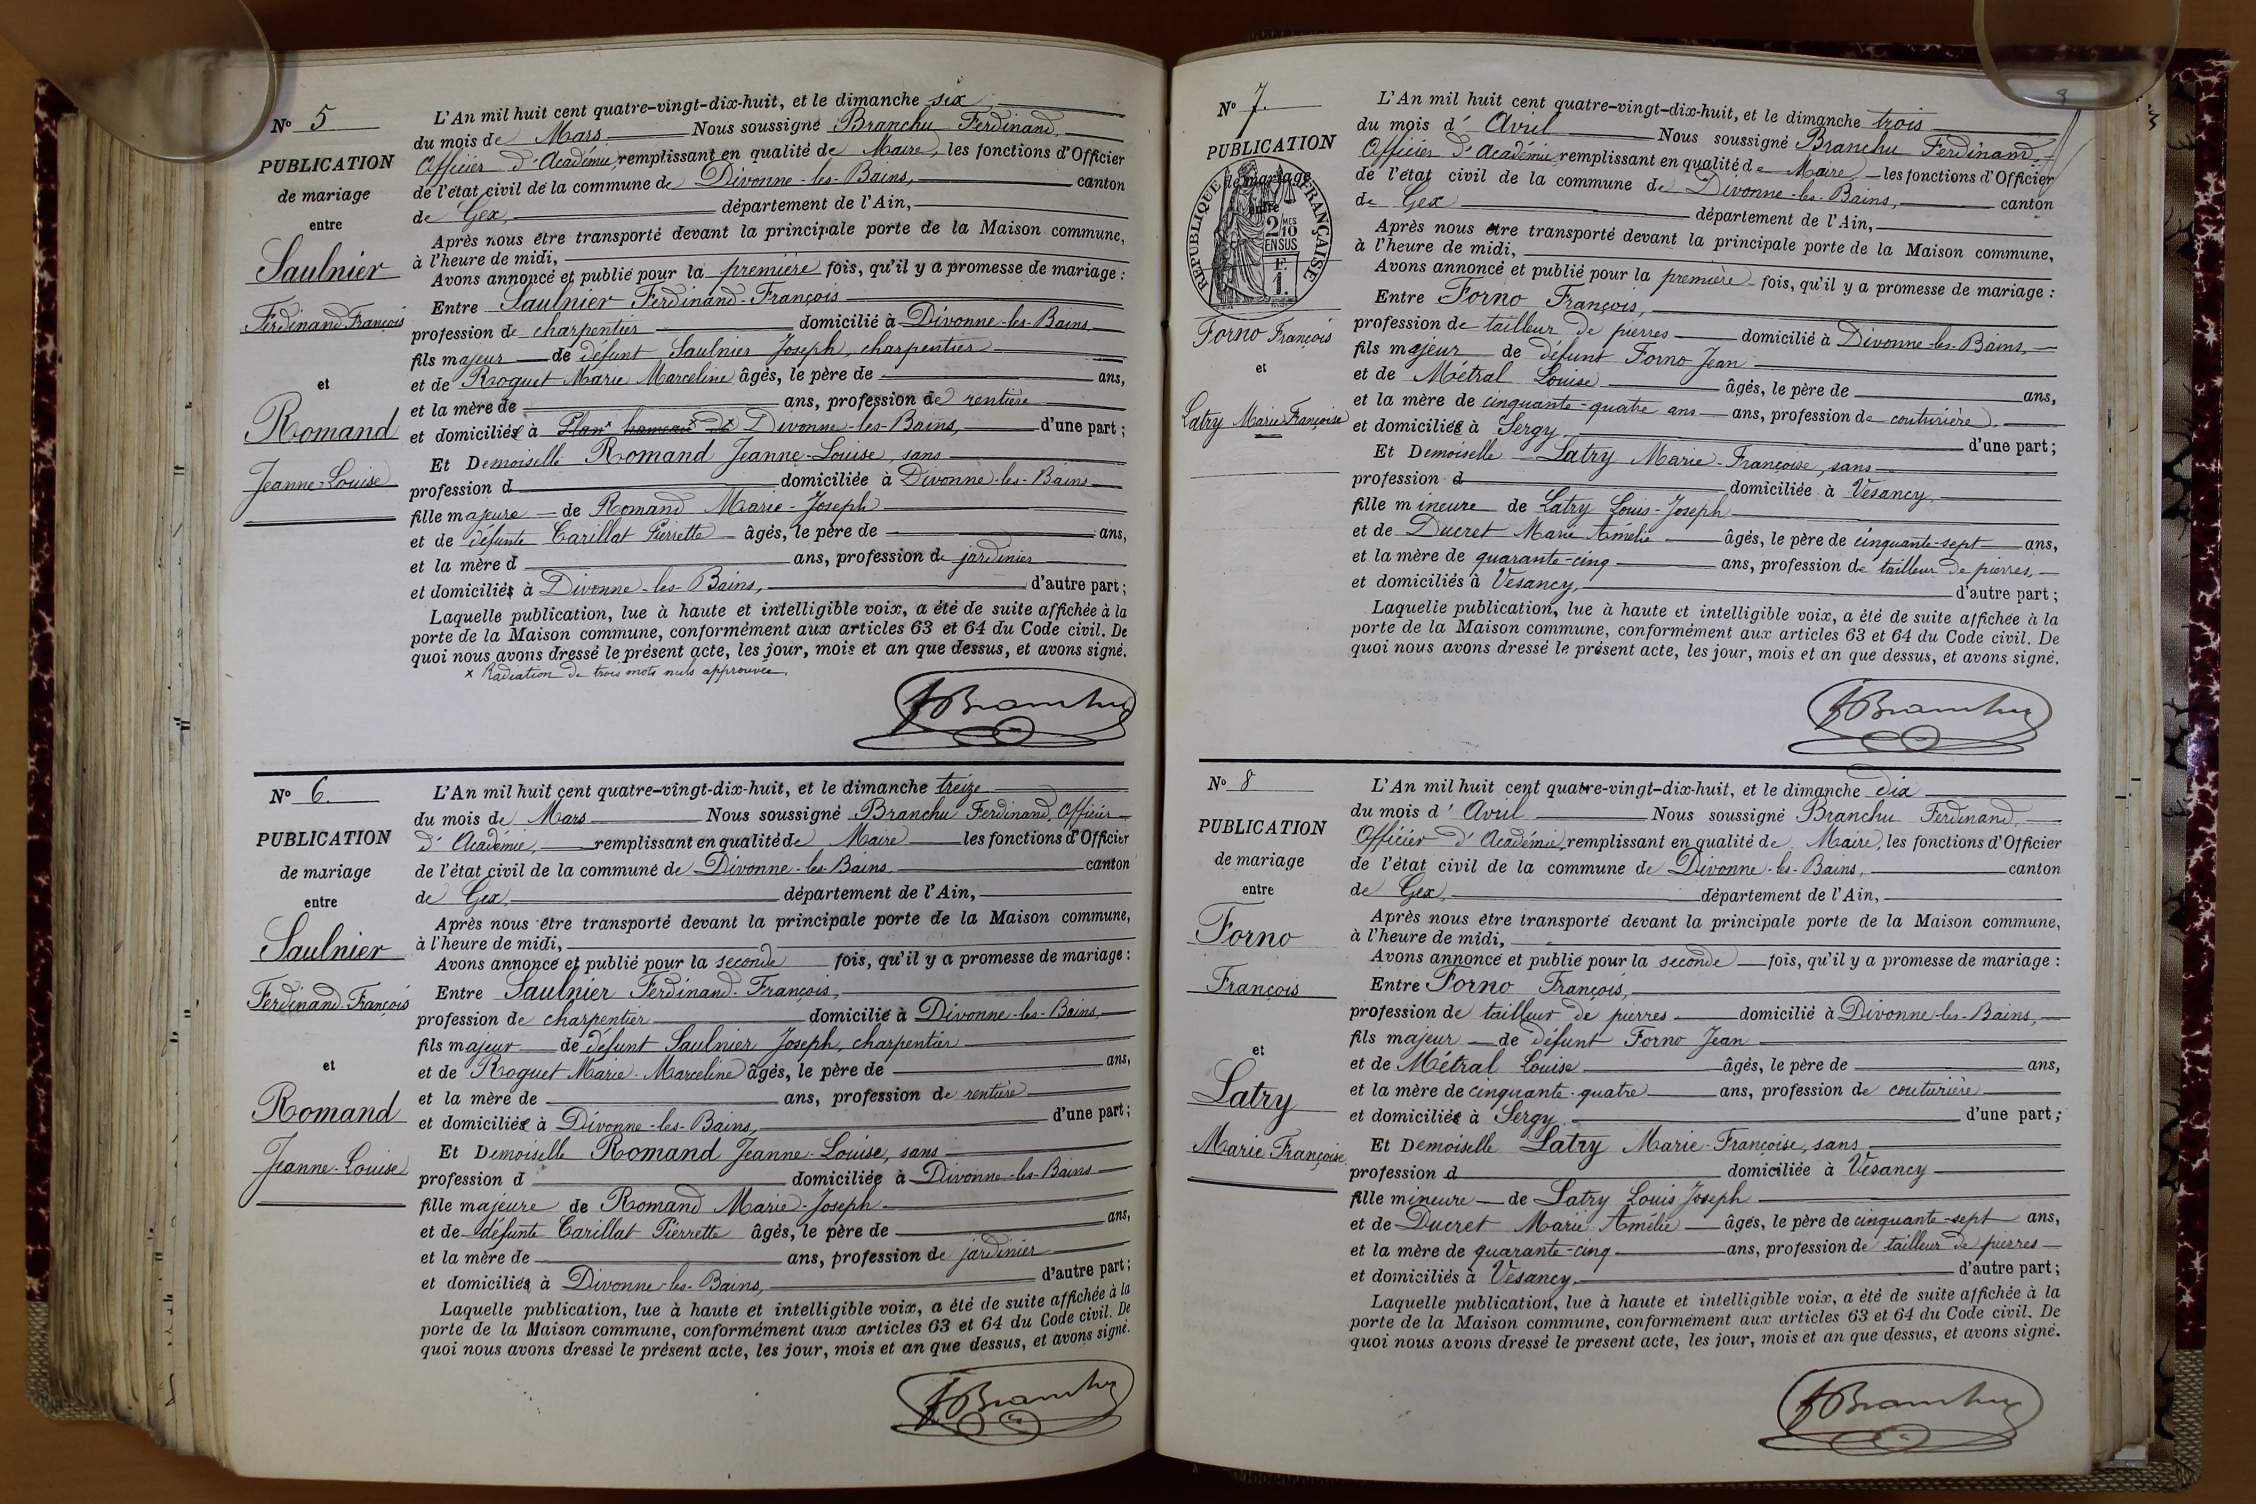 N° 5
PUBLICATION
de mariage
entre
Saulnier
Ferdinand François
et
Romand
Jeanne-Louise
L'An mil huit cent quatre-vingt-dix-huit, et le dimanche six
du mois de Mars Nous soussigné Branchu Ferdinand
Officier d'Académie, remplissant en qualité de Maire, les fonctions d'Officier
de l'état civil de la commune de Divonne-les-Bains, canton
de Gex, département de l'Ain,
Après nous être transporté devant la principale porte de la Maison commune,
à l'heure de midi,
Avons annoncé et publié pour la première fois, qu'il y a promesse de mariage :
Entre Saulnier Ferdinand-François
profession de charpentier domicilié à Divonne-les-Bains
fils majeur de défunt Saulnier Joseph, charpentier
et de Roguet Marie Marceline âgés, le père de ans,
et la mère de ans, profession de rentière
et domiciliés à Plan x hameau x de x Divonne-les-Bains, d'une part ;
Et Demoiselle Romand Jeanne-Louise, sans
profession d domiciliée à Divonne-les-Bains
fille majeure de Romand Marie-Joseph
et de défunte Carillat Pierrette âgés, le père de ans,
et la mère d ans, profession de jardinier
et domiciliés à Divonne-les-Bains, d'autre part ;
Laquelle publication, lue à haute et intelligible voix, a été de suite affichée à la
porte de la Maison commune, conformément aux articles 63 et 64 du Code civil. De
quoi nous avons dressé le présent acte, les jour, mois et an que dessus, et avons signé.
x Radiation de trois mots nuls approuvée
FBranchu
N° 6.
PUBLICATION
de mariage
entre
Saulnier
Ferdinand-François
et
Romand
Jeanne-Louise
L'An mil huit cent quatre-vingt-dix-huit, et le dimanche treize
du mois de Mars Nous soussigné Branchu Ferdinand, Officier
d'Académie, remplissant en qualité de Maire les fonctions d'Officier
de l'état civil de la commune de Divonne-les-Bains canton
de Gex, département de l'Ain,
Après nous être transporté devant la principale porte de la Maison commune,
à l'heure de midi,
Avons annoncé et publié pour la seconde fois, qu'il y a promesse de mariage :
Entre Saulnier Ferdinand-François,
profession de charpentier domicilié à Divonne-les-Bains,
fils majeur de défunt Saulnier Joseph, charpentier
et de Roguet Marie-Marceline âgés, le père de ans,
et la mère de ans, profession de rentière
et domiciliés à Divonne-les-Bains, d'une part ;
Et Demoiselle Romand Jeanne-Louise, sans
profession d domiciliée à Divonne-les-Bains
fille majeure de Romand Marie-Joseph
et de défunte Carillat Pierrette âgés, le père de ans,
et la mère de ans, profession de jardinier
et domiciliés à Divonne-les-Bains, d'autre part ;
Laquelle publication, lue à haute et intelligible voix, a été de suite affichée à la
porte de la Maison commune, conformément aux articles 63 et 64 du Code civil. De
quoi nous avons dressé le présent acte, les jour, mois et an que dessus, et avons signé.
FBranchu
N° 7.
PUBLICATION
de mariage
entre
RÉPUBLIQUE FRANÇAISE
2/10 MES
EN SUS
F.
1.
Forno François
et
Latry Marie Françoise
L'An mil huit cent quatre-vingt-dix-huit, et le dimanche trois
du mois d'Avril Nous soussigné Branchu Ferdinand,
Officier d'Académie, remplissant en qualité de Maire les fonctions d'Officier
de l'état civil de la commune de Divonne-les-Bains, canton
de Gex département de l'Ain,
Après nous être transporté devant la principale porte de la Maison commune,
à l'heure de midi,
Avons annoncé et publié pour la première fois, qu'il y a promesse de mariage :
Entre Forno François,
profession de tailleur de pierres domicilié à Divonne-les-Bains,
fils majeur de défunt Forno Jean
et de Métral Louise âgés, le père de ans,
et la mère de cinquante-quatre ans ans, profession de couturière
et domiciliés à Sergy d'une part ;
Et Demoiselle Latry Marie-Françoise, sans
profession d domiciliée à Vesancy
fille mineure de Latry Louis-Joseph
et de Ducret Marie Amélie âgés, le père de cinquante-sept ans,
et la mère de quarante-cinq ans, profession de tailleur de pierres,
et domiciliés à Vesancy, d'autre part ;
Laquelle publication, lue à haute et intelligible voix, a été de suite affichée à la
porte de la Maison commune, conformément aux articles 63 et 64 du Code civil. De
quoi nous avons dressé le présent acte, les jour, mois et an que dessus, et avons signé.
FBranchu
N° 8
PUBLICATION
de mariage
entre
Forno
François
et
Latry
Marie Françoise
L'An mil huit cent quatre-vingt-dix-huit, et le dimanche dix
du mois d'Avril Nous soussigné Branchu Ferdinand,
Officier d'Académie, remplissant en qualité de Maire, les fonctions d'Officier
de l'état civil de la commune de Divonne-les-Bains, canton
de Gex, département de l'Ain,
Après nous être transporté devant la principale porte de la Maison commune,
à l'heure de midi,
Avons annoncé et publié pour la seconde fois, qu'il y a promesse de mariage :
Entre Forno François,
profession de tailleur de pierres domicilié à Divonne-les-Bains,
fils majeur de défunt Forno Jean
et de Métral Louise âgés, le père de ans,
et la mère de cinquante-quatre ans, profession de couturière
et domiciliés à Sergy d'une part ;
Et Demoiselle Latry Marie-Françoise, sans
profession d domiciliée à Vesancy
fille mineure de Latry Louis Joseph
et de Ducret Marie Amélie âgés, le père de cinquante-sept ans,
et la mère de quarante-cinq ans, profession de tailleur de pierres
et domiciliés à Vesancy, d'autre part ;
Laquelle publication, lue à haute et intelligible voix, a été de suite affichée à la
porte de la Maison commune, conformément aux articles 63 et 64 du Code civil. De
quoi nous avons dressé le présent acte, les jour, mois et an que dessus, et avons signé.
FBranchu